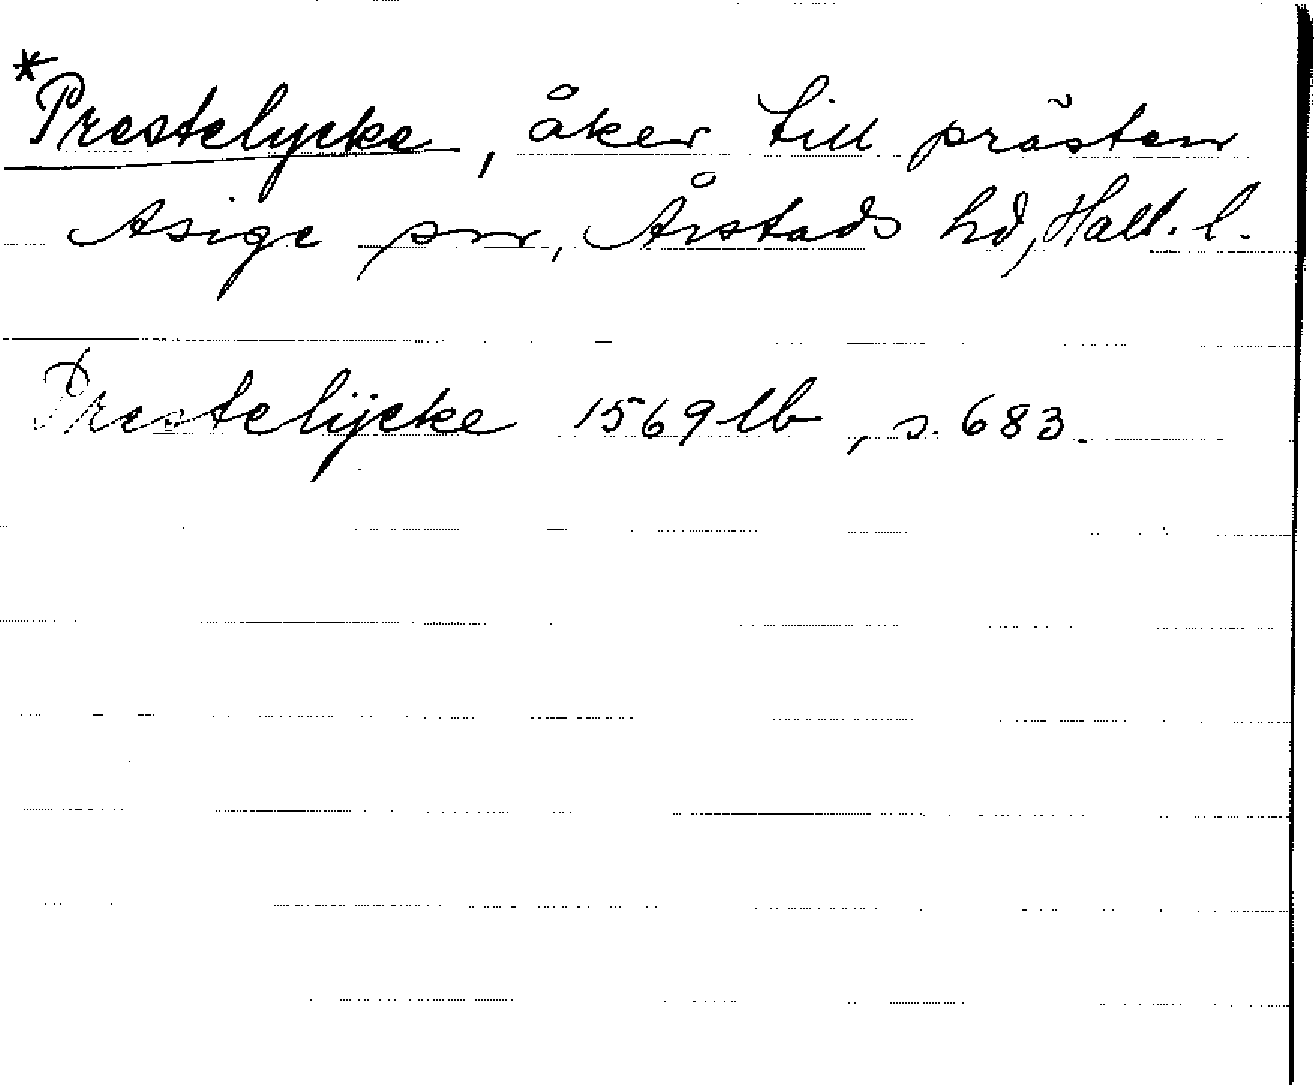 *Prestelycke, åker till prästen
Asige sn, Årstads hd, Hall. l.
Prestelÿcke 1569 lb, s. 683.